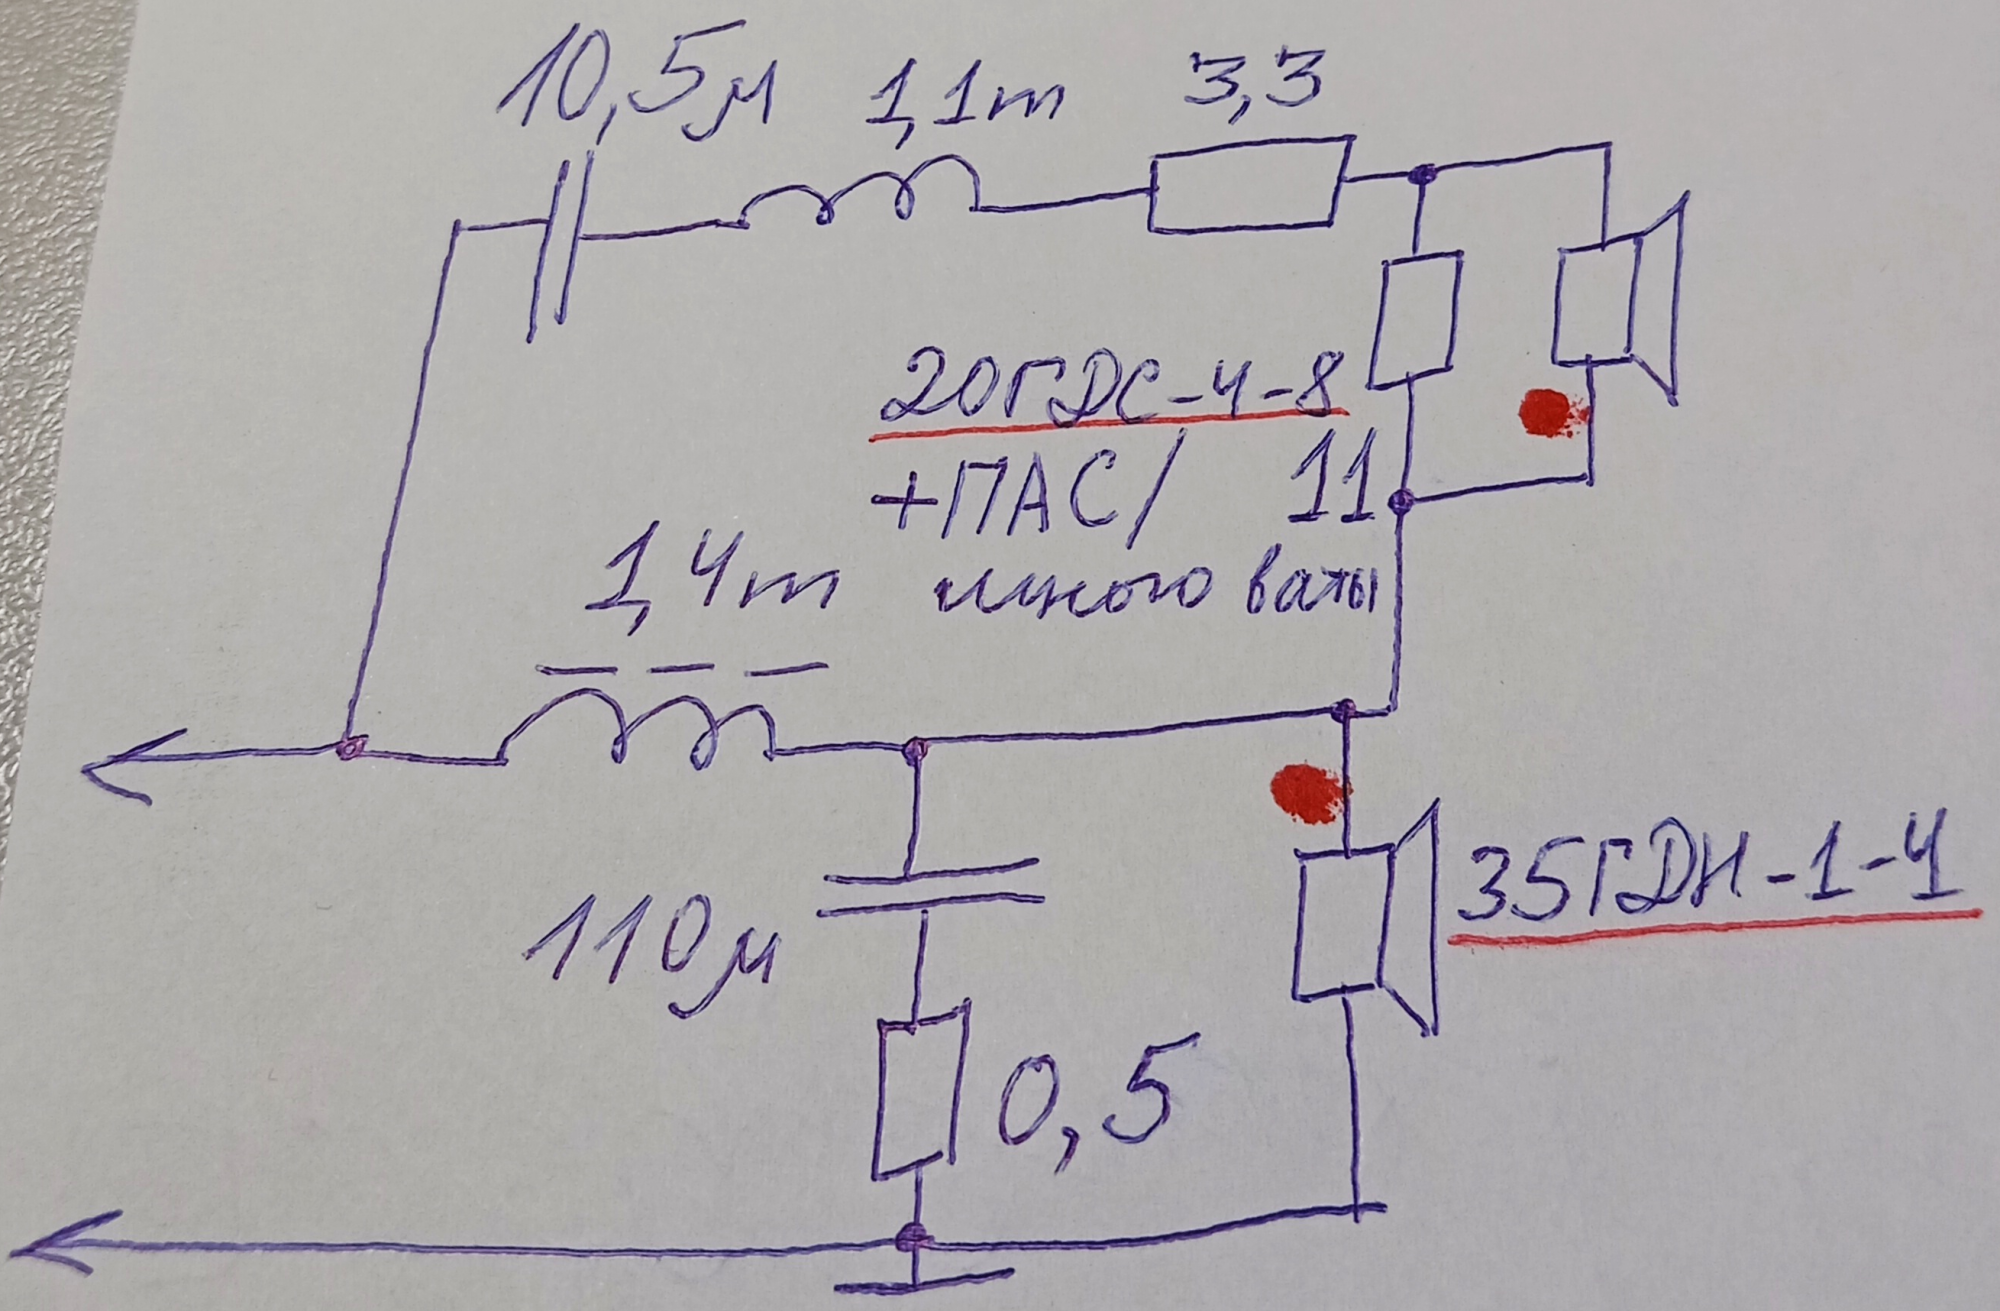 10,5µ 1,1m 3,3
20ГДС-4-8
+ПАС/ 11
много ваты
1,4m
35ГДН-1-4
110µ
0,5